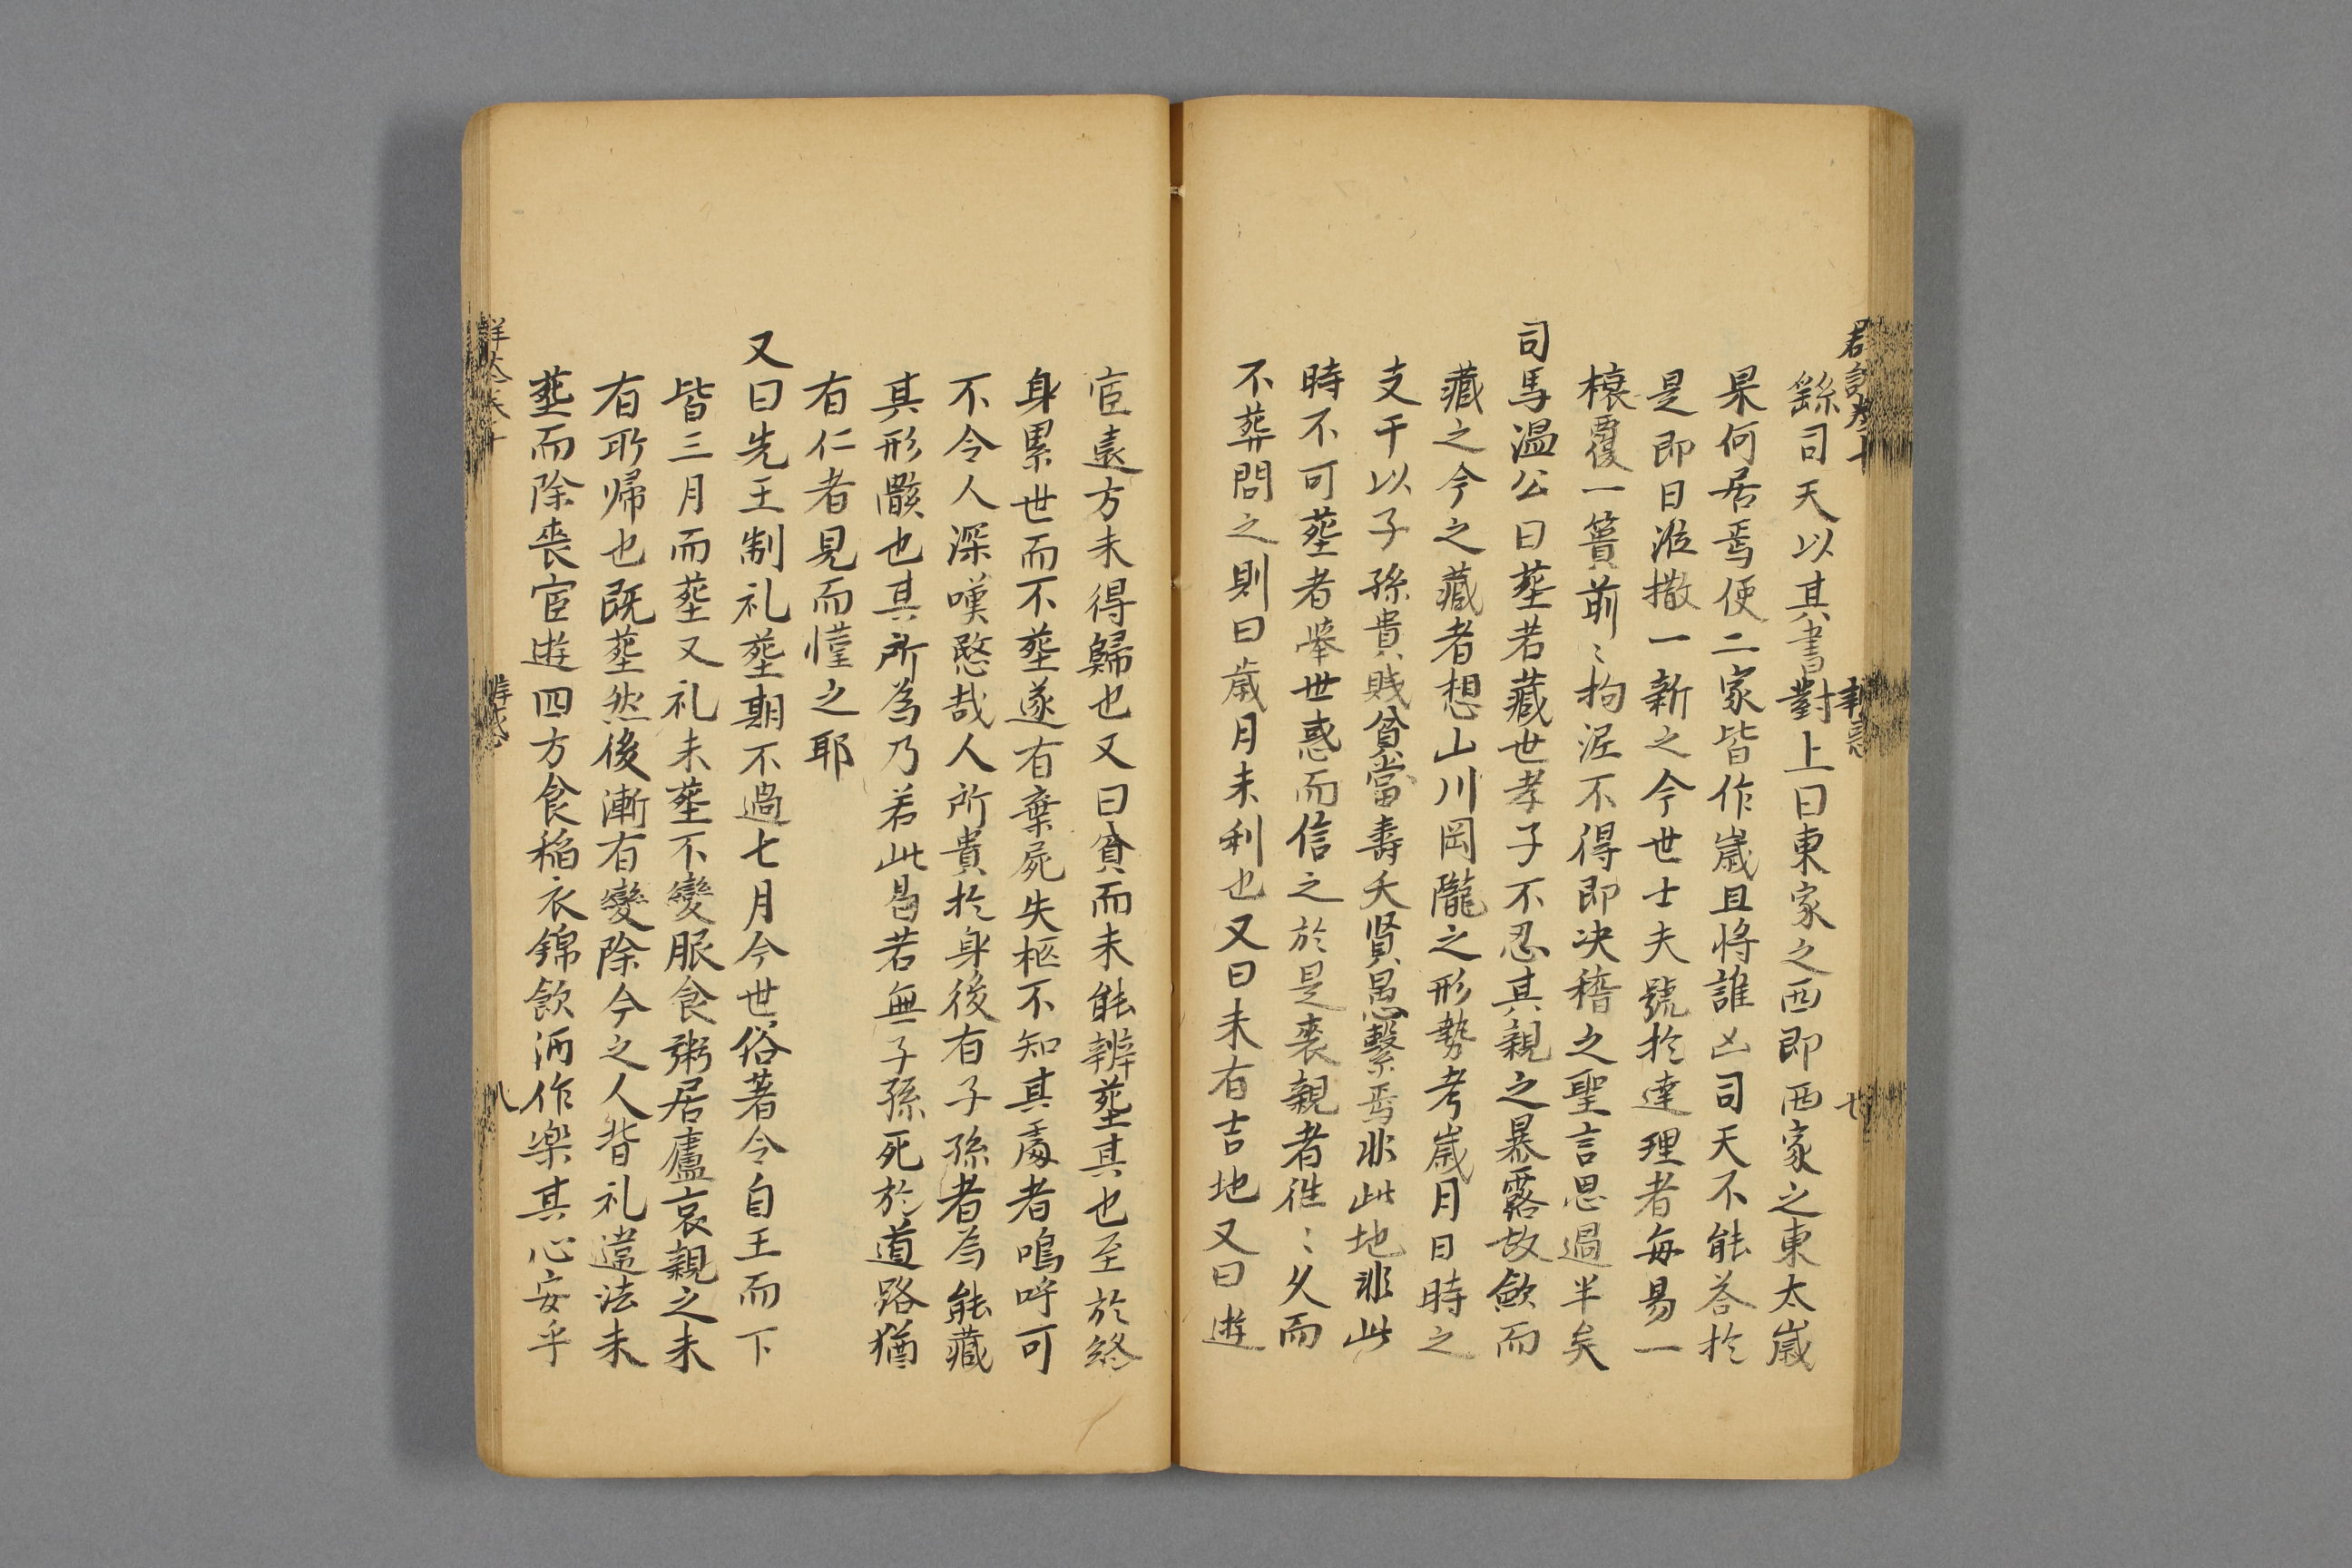 繇司天以其書對上曰東家之西即西家之東太歲
果何居焉使二家皆作歲且將誰凶司天不能荅於
是即日涖撒一新之今世士夫號於達理者每易一
榱覆一簣前〻拘泥不得即决稽之聖言思過半矣
司馬温公曰塟若藏世孝子不忍其親之暴露故斂而
藏之今之藏者想山川岡隴之形勢考歲月日時之
支干以子孫貴賎貧當壽夭賢愚繫焉非此地非此
時不可塟者舉世惑而信之於是喪親者徃〻久而
不葬問之則曰歲月未利也又曰未有吉地又曰遊
宦遠方未得歸也又曰貧而未能辨塟其也至於終
身累世而不塟遂有棄屍失柩不知其處者嗚呼可
不令人深嘆愍哉人所貴於身後有子孫者為能藏
其形骸也其所為乃若此曷若無子孫死於道路猶
有仁者見而憧之耶
又曰先王制礼塟期不過七月今世俗著令自王而下
皆三月而塟又礼未塟不變服食粥居廬哀親之未
有所歸也既塟然後漸有變除今之人背礼違法未
塟而除喪宦遊四方食稲衣錦飲酒作楽其心安乎
八